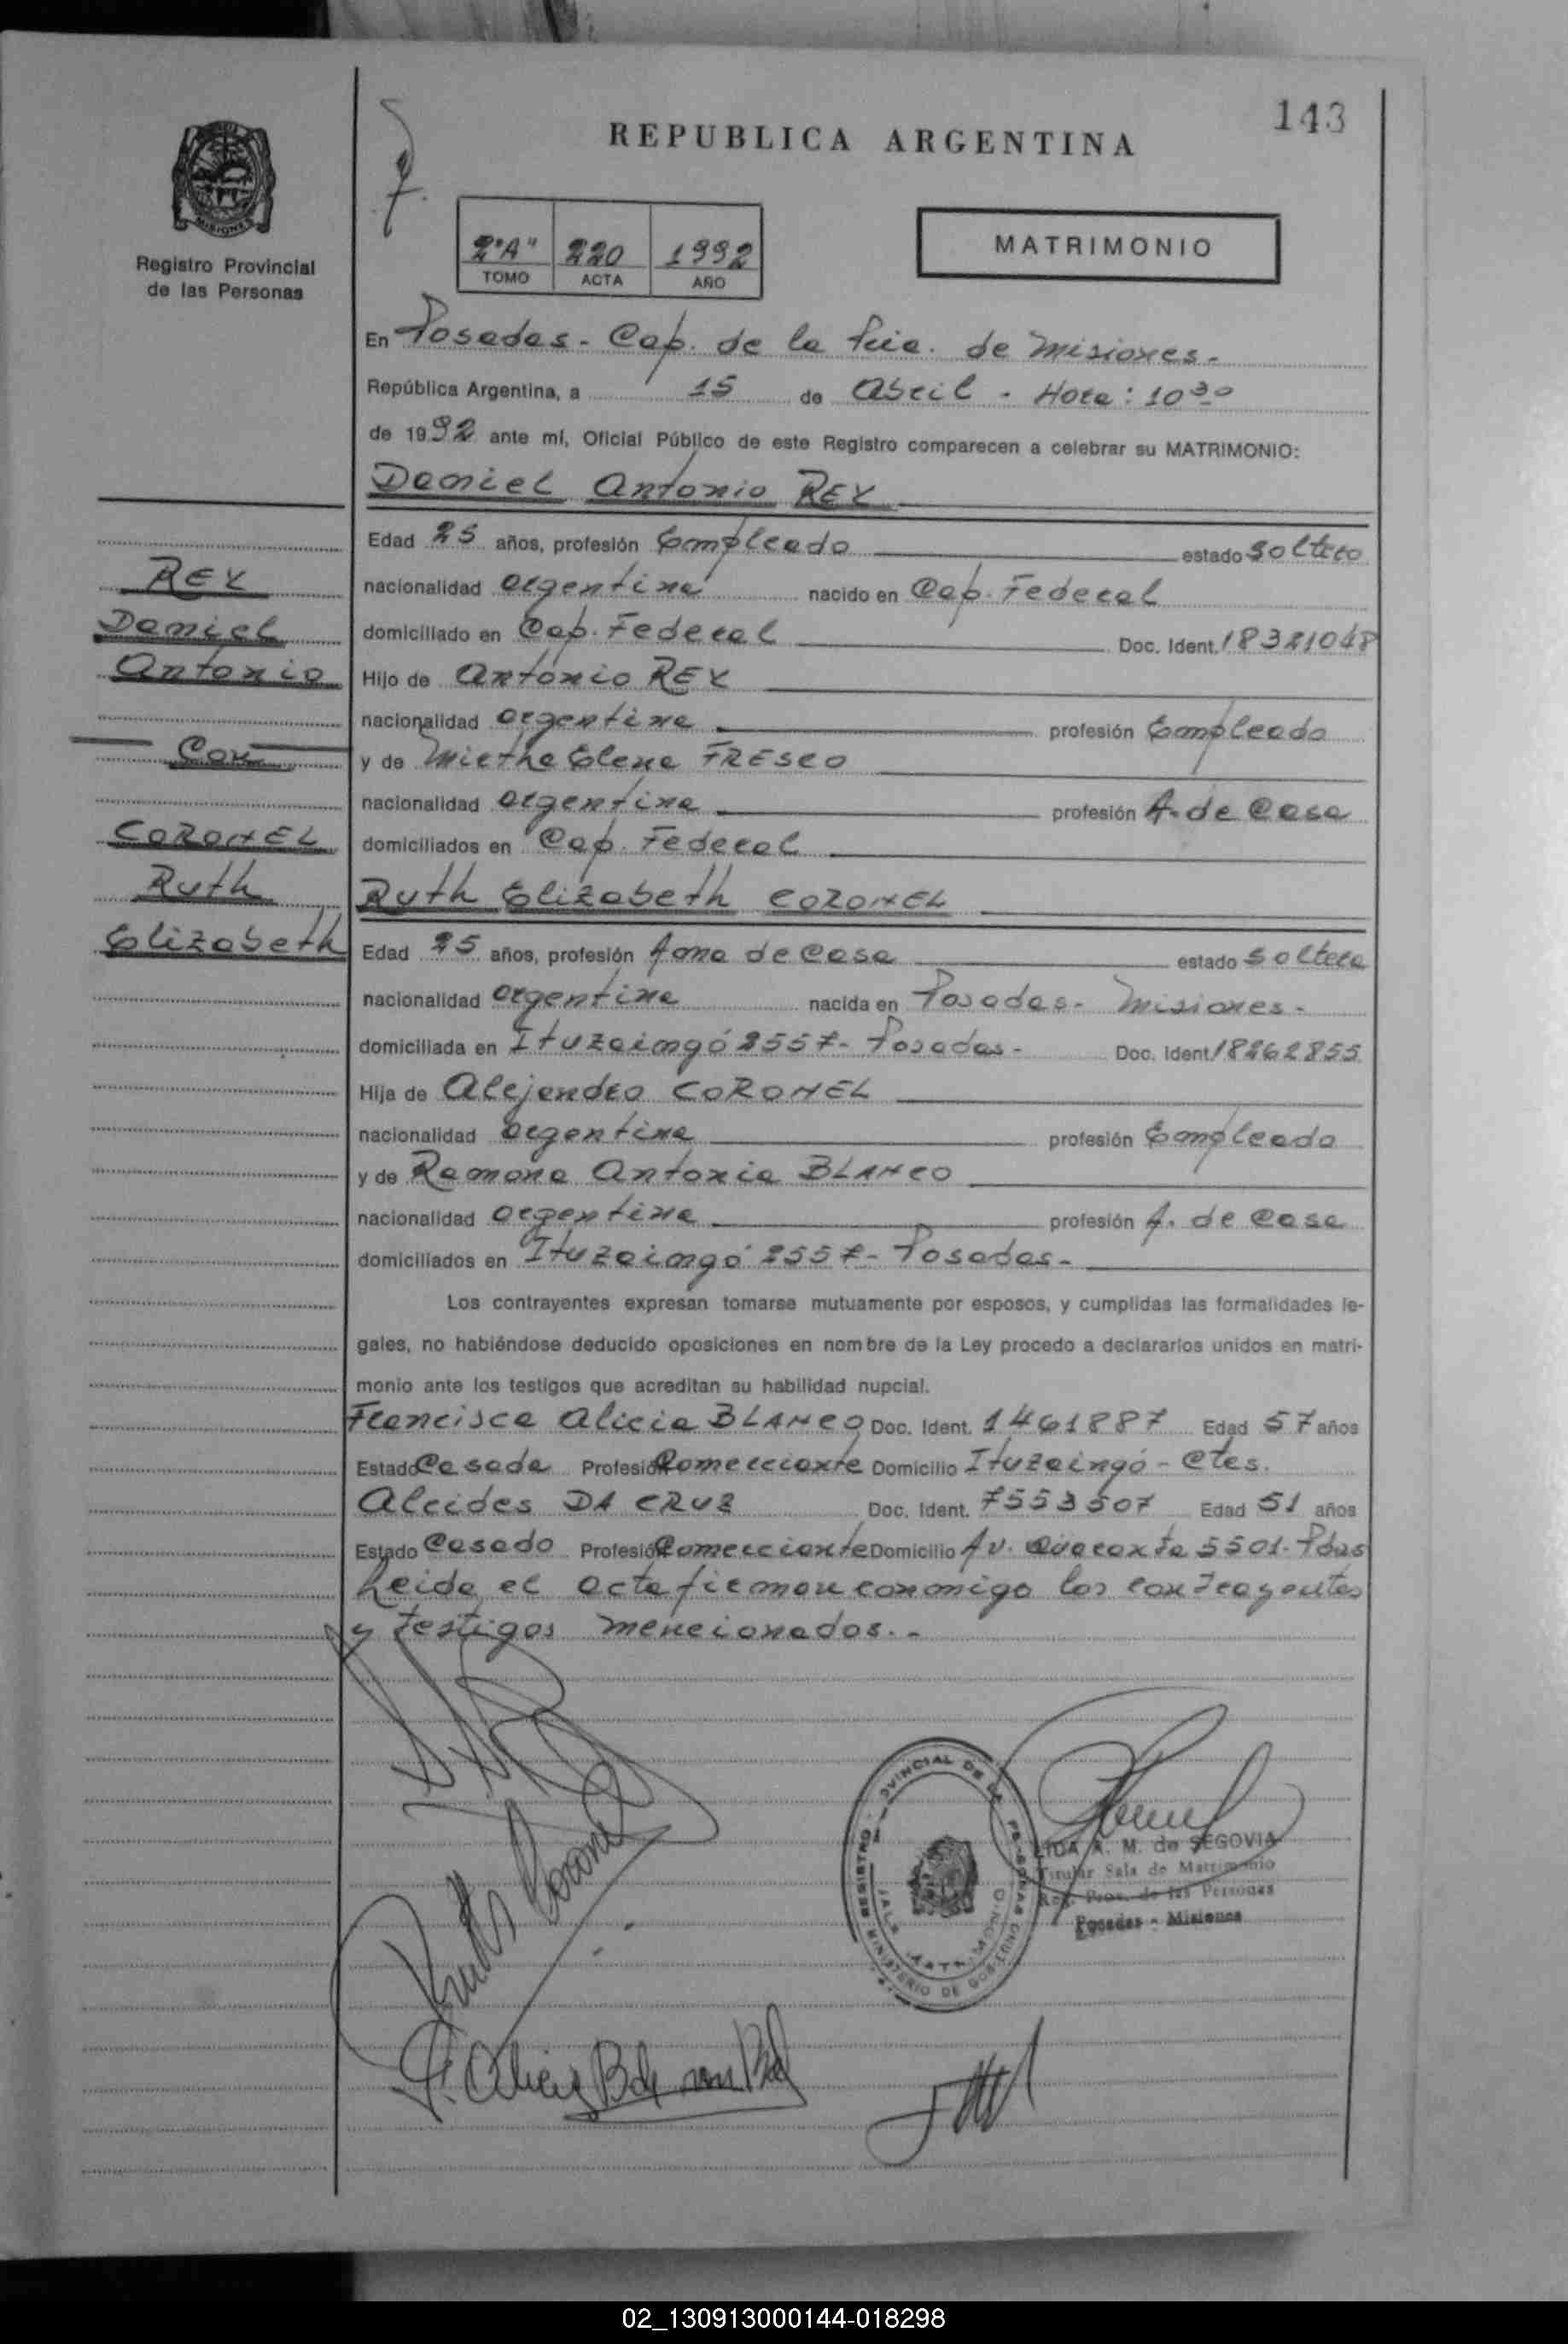 143
REPUBLICA ARGENTINA
MISIONES
Registro Provincial
de las Personas
2"A" 220 1992
TOMO ACTA AÑO
MATRIMONIO
En Posadas - Cap. de la Pcia. de Misiones -
República Argentina, a 15 de Abril - Hora: 10 30
de 1992 ante mí, Oficial Público de este Registro comparecen a celebrar su MATRIMONIO:
Daniel Antonio REY
Edad 25 años, profesión Empleado estado Soltero
REY
nacionalidad argentina nacido en Cap. Federal
Daniel
domiciliado en Cap. Federal Doc. Ident. 18321048
Antonio
Hijo de Antonio REY
nacionalidad argentina profesión Empleado
Con
y de Mirtha Elena FRESCO
nacionalidad argentina profesión A. de Casa
CORONEL
domiciliados en Cap. Federal
Ruth
Ruth Elizabeth CORONEL
Elizabeth
Edad 25 años, profesión Ama de Casa estado Soltera
nacionalidad argentina nacida en Posadas - Misiones -
domiciliada en Ituzaingó 2557 - Posadas - Doc. Ident. 18262855
Hija de Alejandro CORONEL
nacionalidad argentina profesión Empleado
y de Ramona Antonia BLANCO
nacionalidad argentina profesión A. de Casa
domiciliados en Ituzaingó 2557 - Posadas -
Los contrayentes expresan tomarse mutuamente por esposos, y cumplidas las formalidades le-
gales, no habiéndose deducido oposiciones en nombre de la Ley procedo a declararlos unidos en matri-
monio ante los testigos que acreditan su habilidad nupcial.
Francisca Alicia BLANCO Doc. Ident. 1461887 Edad 57 años
Estado Casada Profesión Comerciante Domicilio Ituzaingó - Ctes.
Alcides DA CRUZ Doc. Ident. 7553507 Edad 51 años
Estado Casado Profesión Comerciante Domicilio Av. Quaranta 5501 - Pdas
Leida el acta firman conmigo los contrayentes
y testigos mencionados. -
Ruth Coronel
REGISTRO PROVINCIAL DE LAS PERSONAS
MINISTERIO DE GOBIERNO
SALA MATRIMONIO
A. M. de SEGOVIA
Titular Sala de Matrimonio
Reg. Prov. de las Personas
Posadas - Misiones
02_130913000144-018298